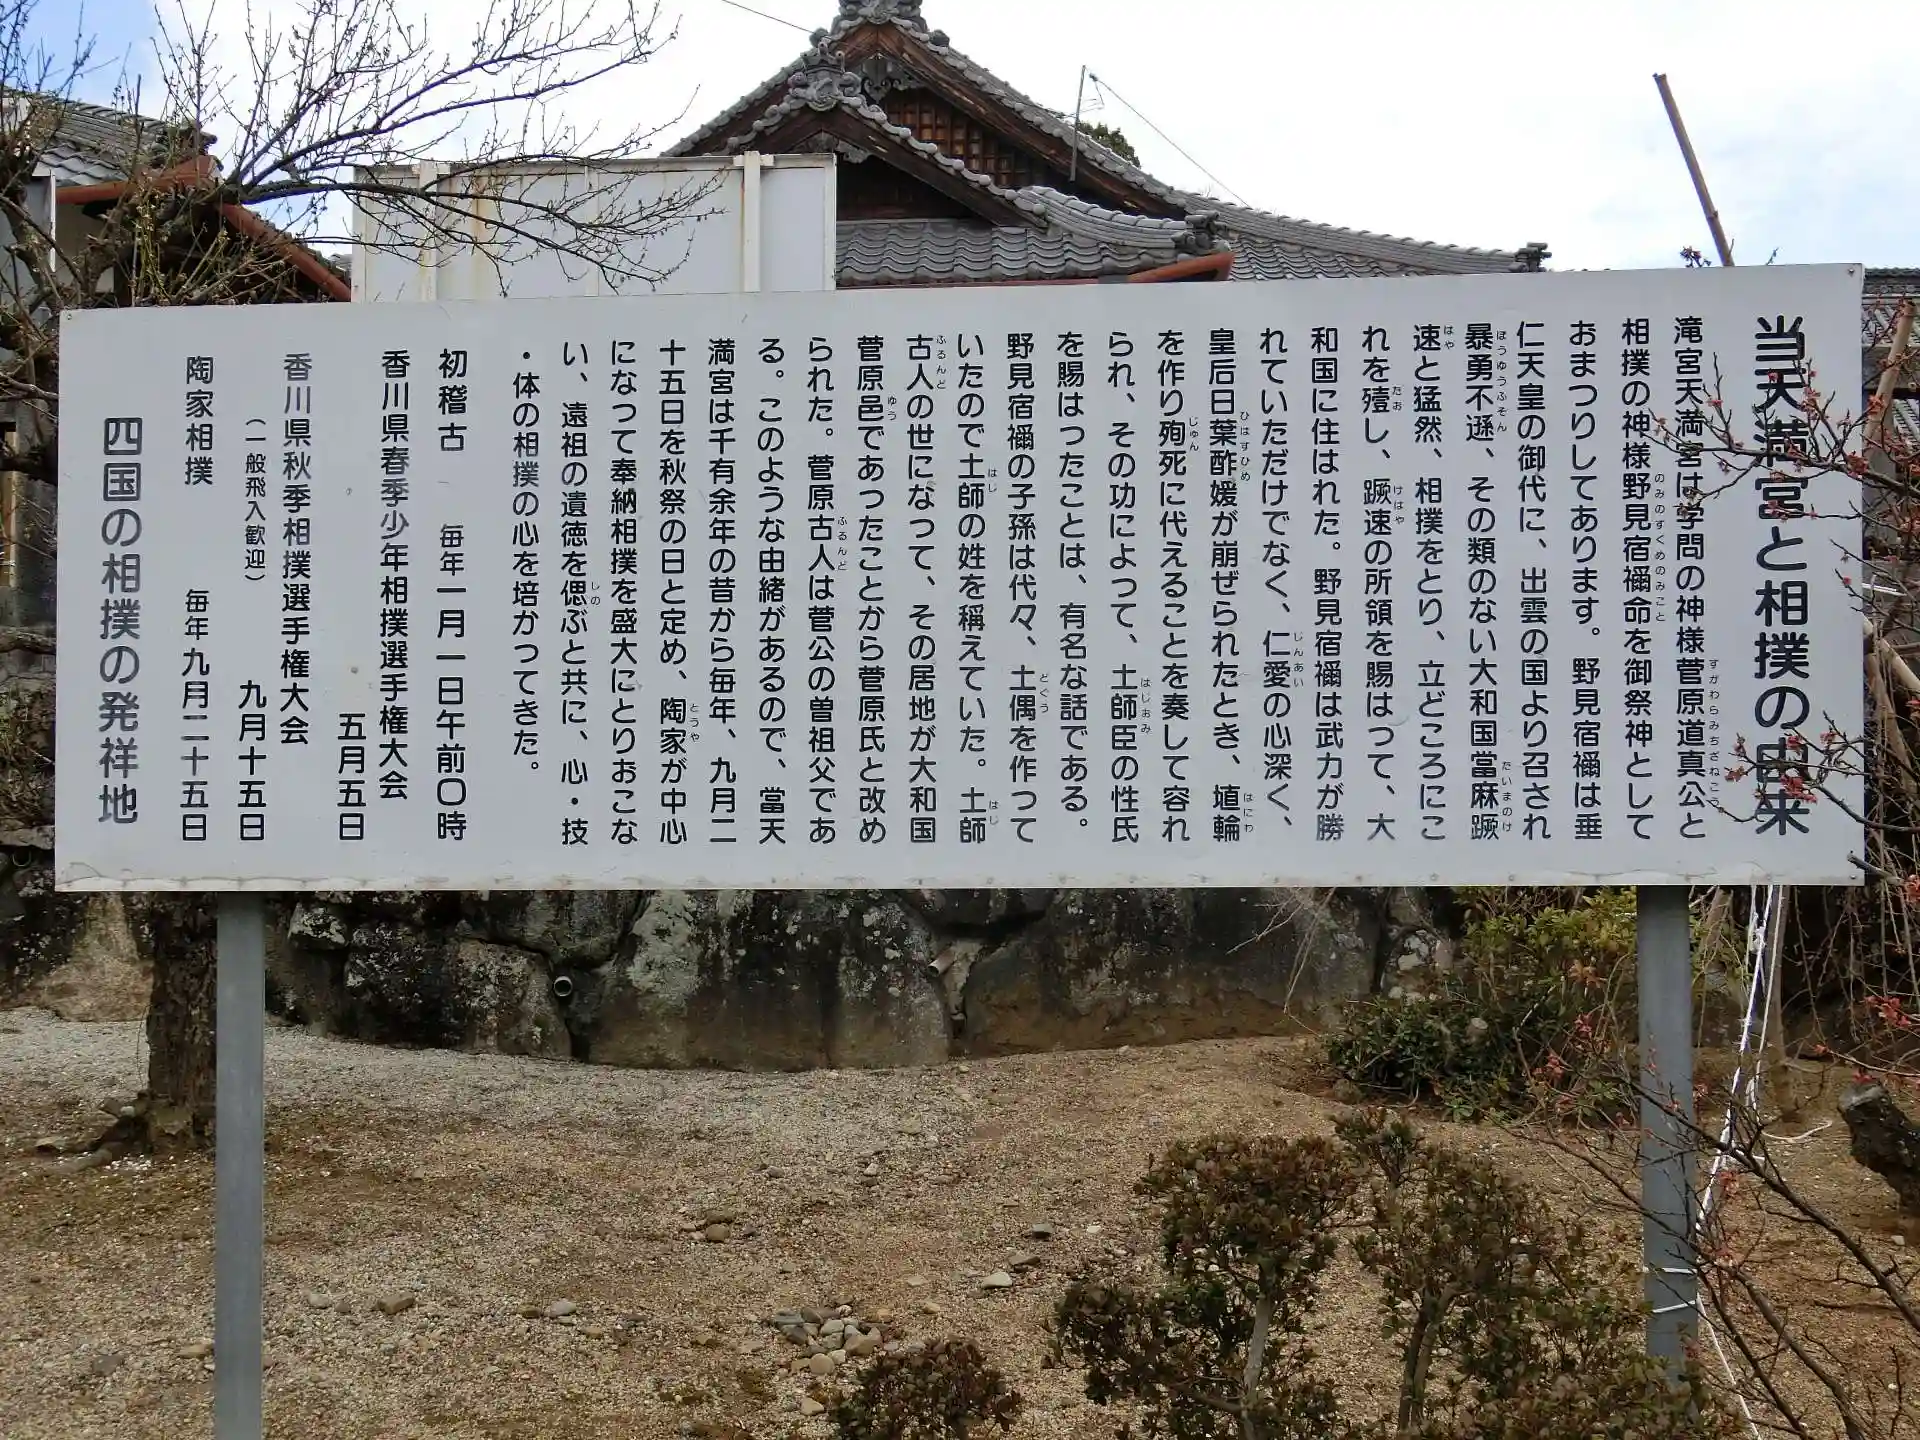 当天満宮と相撲の由来
滝宮天満宮は学問の神様菅原道真公と
相撲の神様野見宿禰命を御祭神として
おまつりしてあります。野見宿禰は垂
仁天皇の御代に、出雲の国より召され
暴勇不遜、その類のない大和国當麻蹶
速と猛然、相撲をとり、立どころにこ
れを殪し、蹶速の所領を賜はつて、大
和国に住はれた。野見宿禰は武力が勝
れていただけでなく、仁愛の心深く、
皇后日葉酢媛が崩ぜられたとき、埴輪
を作り殉死に代えることを奏して容れ
られ、その功によって、土師臣の性氏
を賜はったことは、有名な話である。
野見宿禰の子孫は代々、土偶を作って
いたので土師の姓を稱えていた。土師
古人の世になって、その居地が大和国
菅原邑であったことから菅原氏と改め
られた。菅原古人は菅公の曽祖父であ
る。このような由緒があるので、當天
満宮は千有余年の昔から毎年、九月二
十五日を秋祭の日と定め、陶家が中心
になって奉納相撲を盛大にとりおこな
い、遠祖の遺徳を偲ぶと共に、心・技
・体の相撲の心を培かってきた。
初稽古　毎年一月一日午前〇時
香川県春季少年相撲選手権大会
五月五日
香川県秋季相撲選手権大会
（一般飛入歓迎）　九月十五日
陶家相撲　毎年九月二十五日
四国の相撲の発祥地